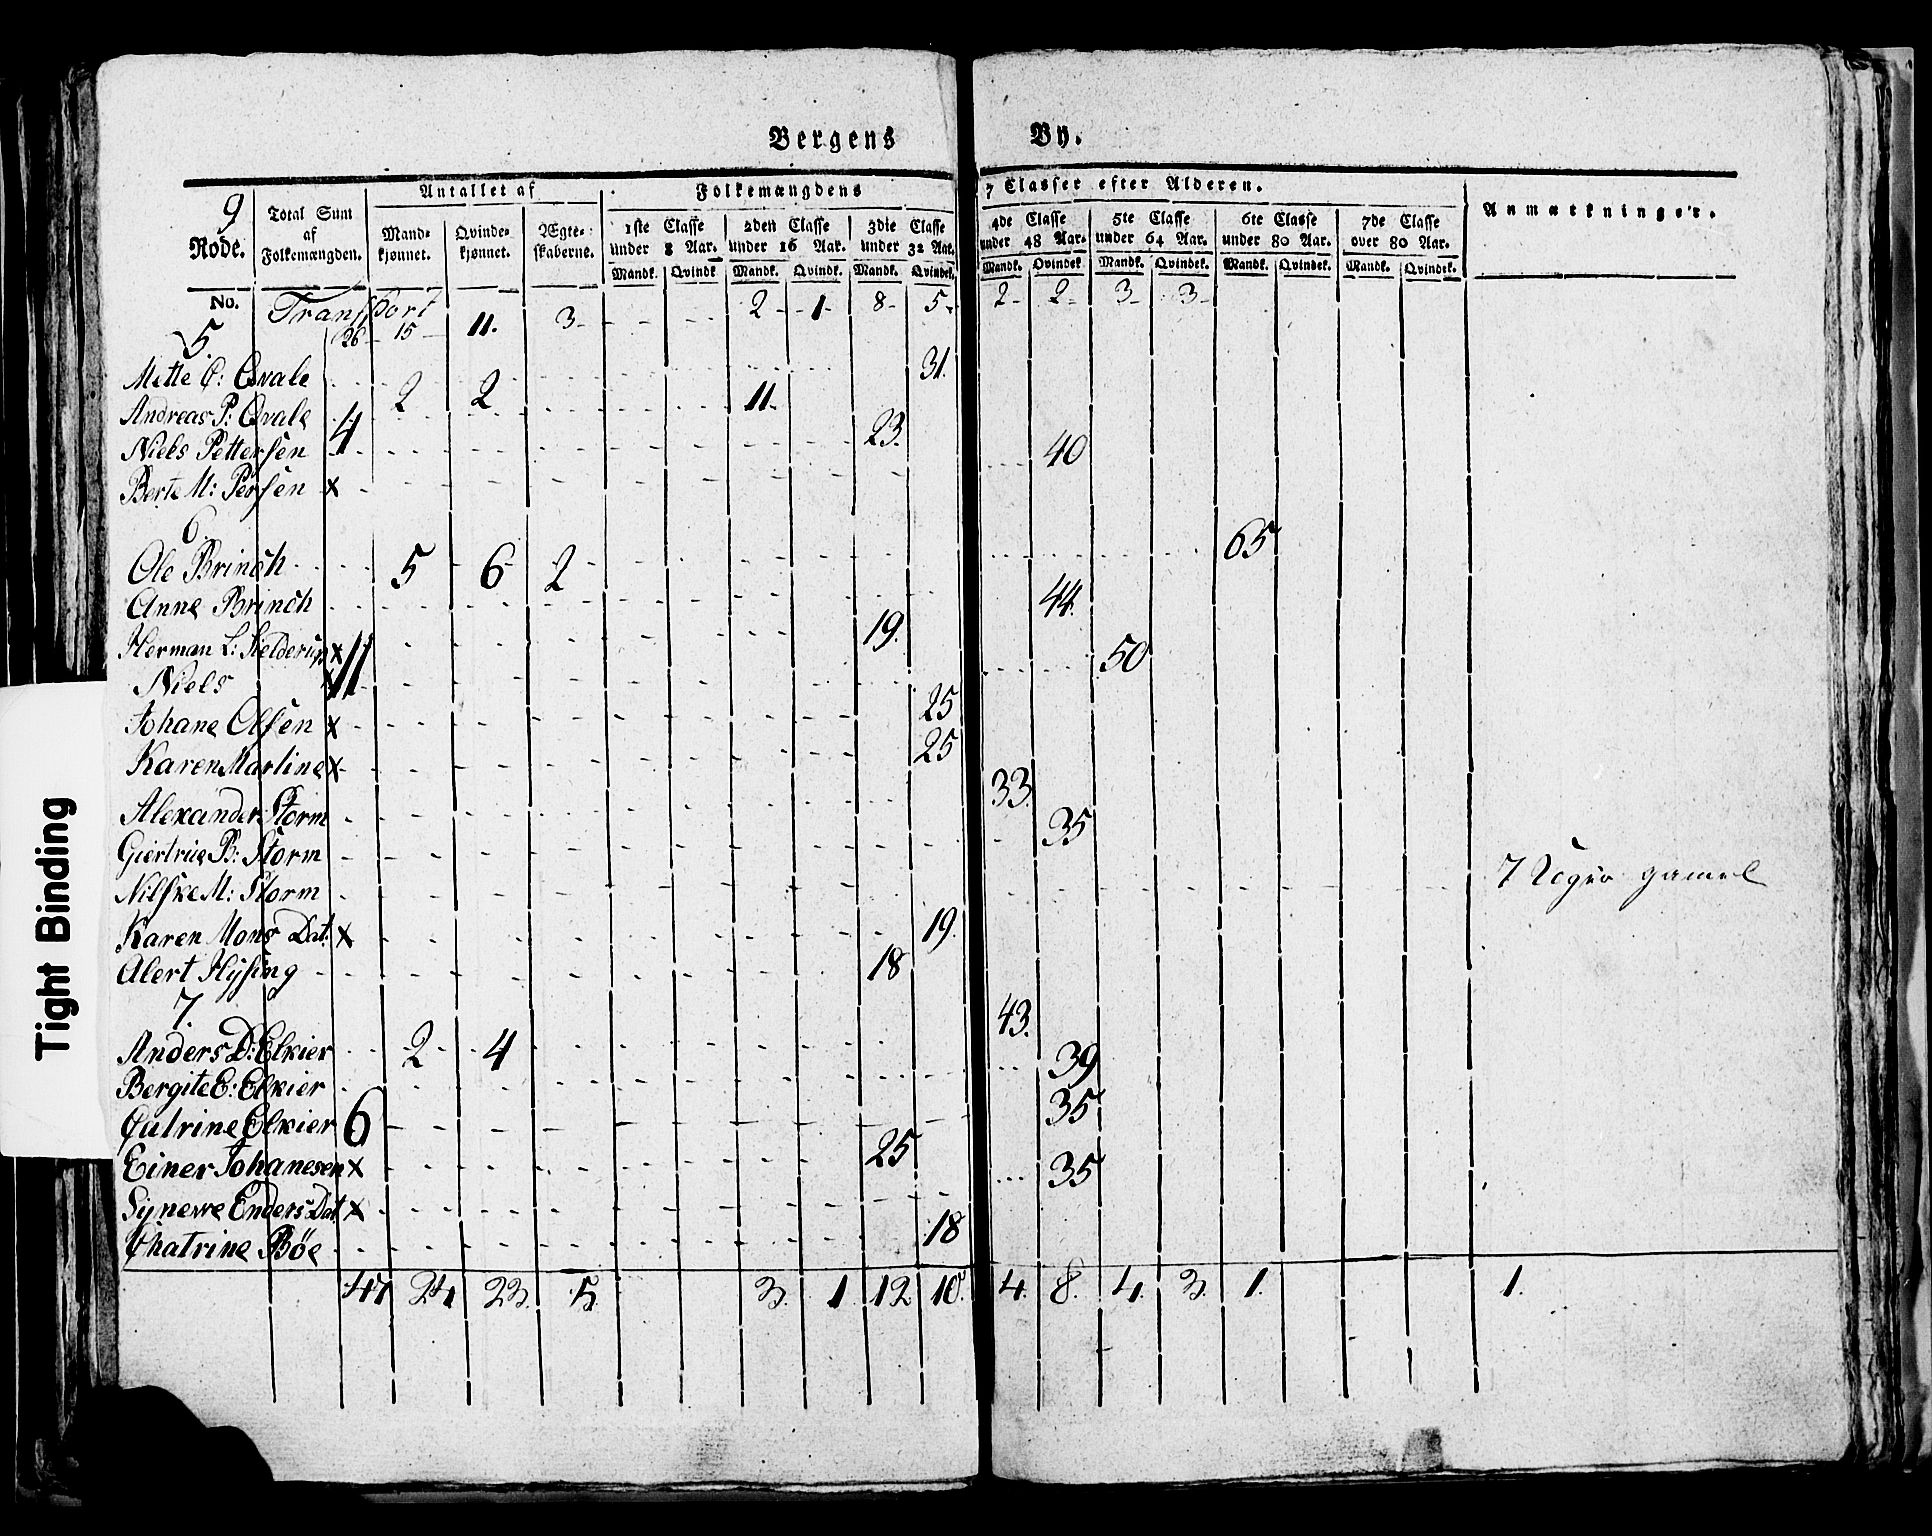 Bergens By.
9 Rode.
Total Sum af Folkemængden.
Antallet af
Mandkjønnet. Qvindekjønnet. Ægteskaberne.
Folkemængdens 7 Classer efter Alderen.
1ste Classe under 8 Aar. 2den Classe under 16 Aar. 3die Classe under 32 Aar. 4de Classe under 48 Aar. 5te Classe under 64 Aar. 6te Classe under 80 Aar. 7de Classe over 80 Aar.
Anmærkninger.
Mandk. Qvindk. Mandk. Qvindk. Mandk. Qvindek. Mandk. Qvindek. Mandk. Qvindek. Mandk. Qvindek. Mandk. Qvindek.
No. Transport 26 15 11. 3 2 1 8 5 2 2 3 3
5.
Mette C: Qvale 2 2 31.
Andreas P: Qvale 4 11.
Niels Pettersen 23.
Berte M: Persen x 40
6.
Ole Brinch 5 6 2 65
Anne Brinch 44.
Herman L: Hielderup x 11 19.
Niels x 50
Johane Olsen x 25
Karen Martine x 25
Alexander Storm 33.
Giertrue B: Storm 35
Nilske M: Storm 7 Uger gamel
Karen Mons Dat: x 19.
Alert Hysing 18
7.
Anders D: Elkier 2 4 43.
Bergite E: Elkier 39
Catrine Elkier 6 35
Einer Johanesen x 25
Synewe Enders Dat x 35
Chatrine Bøe 18
47 24 23. 5. 3. 1 12 10. 4. 8. 4. 3. 1. 1.
Tight Binding